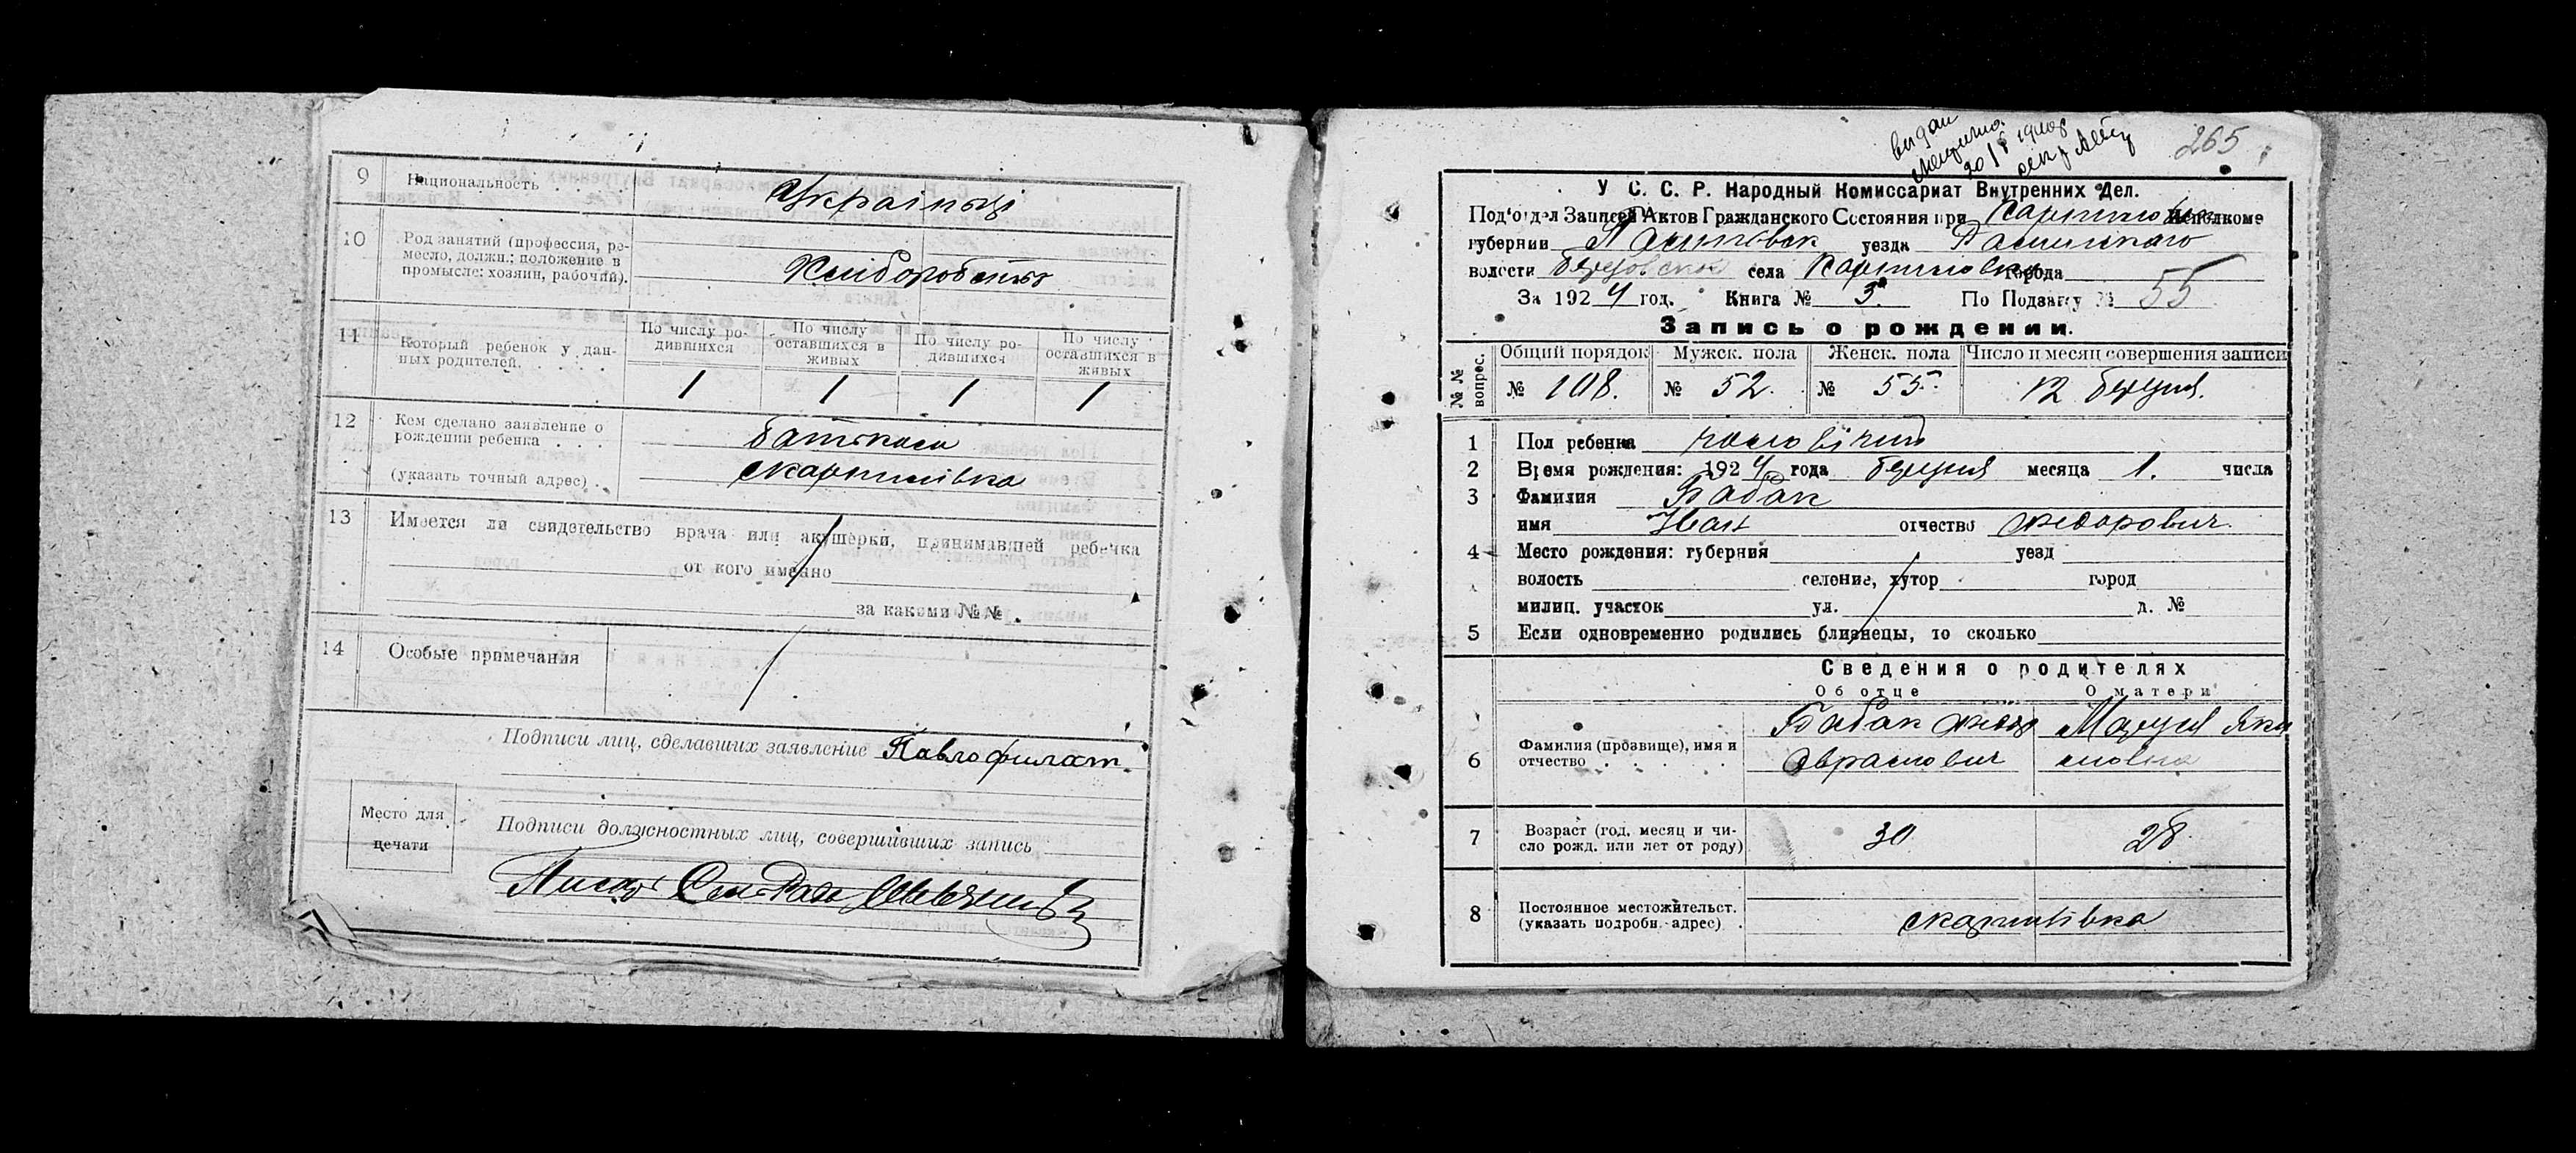 9 Национальность . . . . Українці
10 Род занятий (профессия, ре-
месло, должн.; положение в
промысле: хозяин, рабочий). Хліборобство
11 Который ребенок у дан-
ных родителей. . . . . .
По числу ро-
дившихся
По числу
оставшихся в
живых
По числу ро-
дившихся
По числу
оставшихся в
живых
1 1 1 1
12 Кем сделано заявление о
рождении ребенка . . . батьком
(указать точный адрес) . Скарпилівка
13 Имеется ли свидетельство врача или акушерки, принимавшей ребенка
от кого именно
за какеми №№.
14 Особые примечания
Подписи лиц, сделавших заявление Павло Филат.
Место для
печати
Подписи должностных лиц, совершивших запись
265
У С. С. Р. Народный Комиссариат Внутренних Дел.
Под'отдел Записей Актов Гражданского Состояния при Исполкоме
губернии уезда
волости села города
За 1924 год. Книга № 3. По Подзагу № 55
Запись о рождении.
№ № вопрос.
Общий порядок Мужск. пола Женск. пола Число и месяц совершения записи
№ 108. № 52. № 55. 12 березня.
1 Пол ребенка чоловічий
2 Время рождения: 1924 года березня месяца 1. числа
3 Фамилия Бабак
имя Иван отчество Федорович
4 Место рождения: губерния уезд
волость селение, хутор город
милиц. участок ул. д. №
5 Если одновременно родились близнецы, то сколько
Сведения о родителях
Об отце О матери
6 Фамилия (прозвище), имя и
отчество . . . . . .
Бабак Федор
Аврамович
7 Возраст (год, месяц и чи-
сло рожд. или лет от роду) 30 28
8 Постоянное местожительст.
(указать подробн. адрес) . Скарпилівка